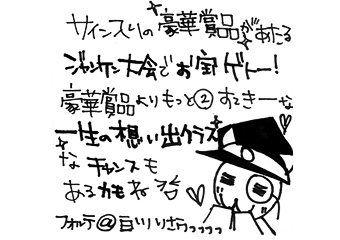 サイン入りの豪華賞品があたる
ジャンケン大会でお宝ゲトー！
豪華賞品よりもっと②すてきーな
一生の想い出クラス
なチャンスも
あるかもね
フォルテ@